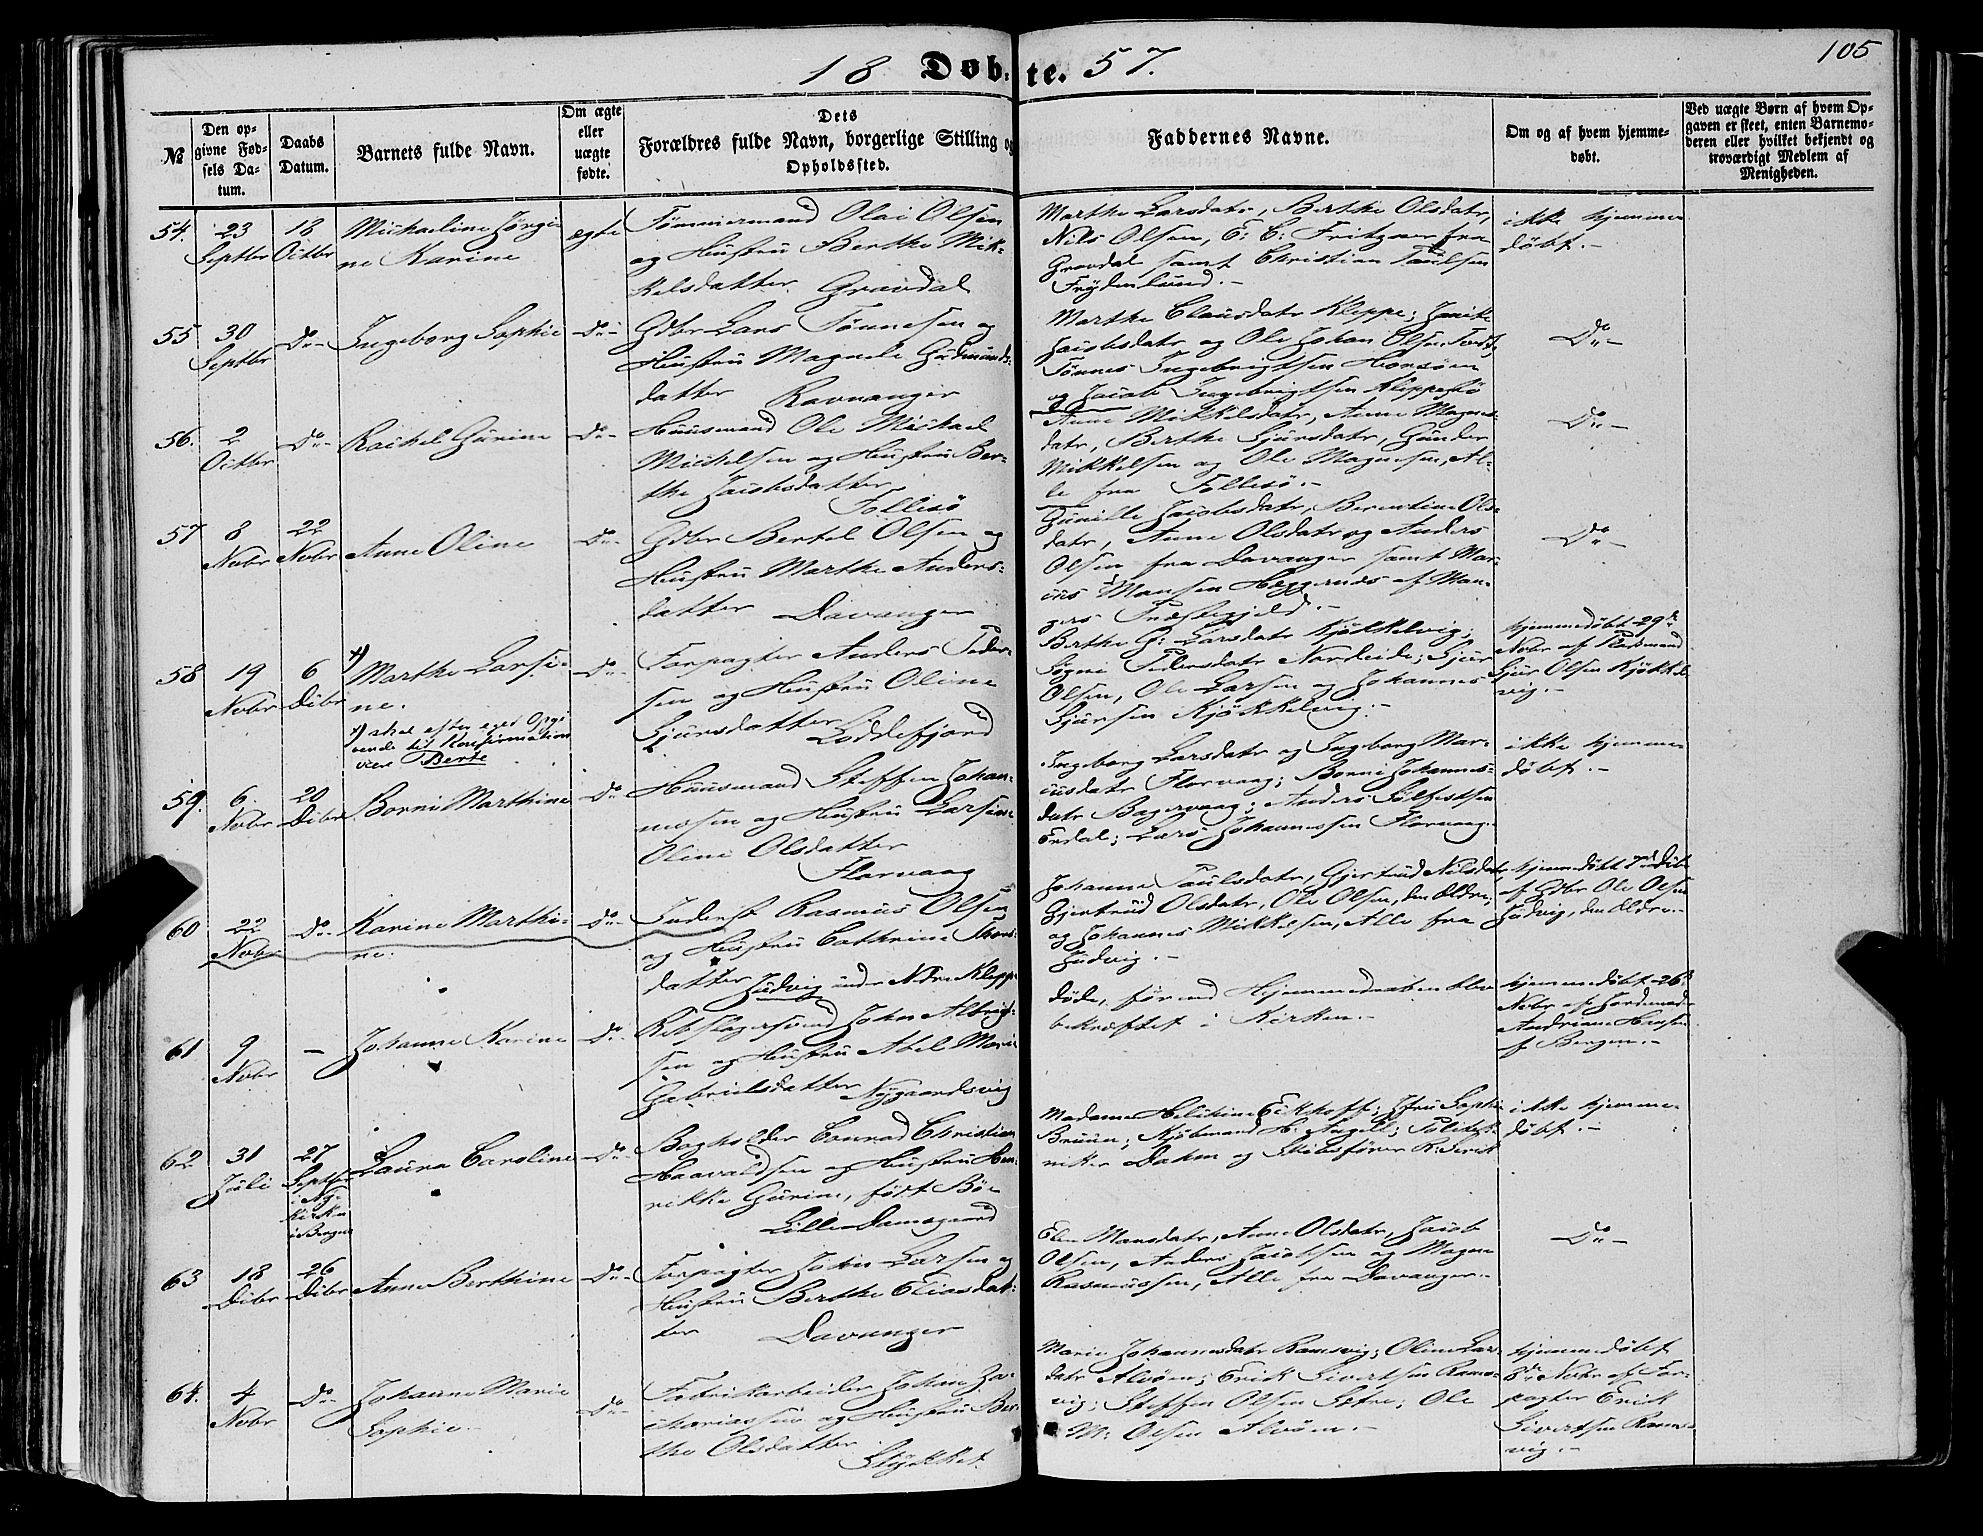 105
18 Døbte. 57.
№
Den opgivne Fødsels Datum.
Daabs Datum.
Barnets fulde Navn.
Om ægte eller uægte fødte.
Dets Forældres fulde Navn, borgerlige Stilling og Opholdssted.
Faddernes Navne.
Om og af hvem hjemmedøbt.
Ved uægte Børn af hvem Opgaven er skeet, enten Barnemoderen eller hvilket bekjendt og troværdigt Medlem af Menigheden.
54. 23 Septbr 18 Octbr
Michaeline Jørgi-
ne Karine
ægte
Tømmermand Olai Olsen
og Hustru Berthe Mik-
kelsdatter Gravdal
Marthe Larsdatr, Berthe Olsdatr,
Nils Olsen, E: C: Fritzner fra
Gravdal samt Christian Paulsen
Frydenlund.-
ikke hjemme
døbt.-
55 30 Septbr Do-
Ingeborg Sophie
Do-
Gdbr Lars Tønnesen og
Hustru Magnele Gudmunds-
datter Ravnanger
Marthe Clausdatr Kleppe;
Jacobsdatr og Ole Johan Olsen
Tønnes Ingebrigtsen
og Jacob Ingebrigtsen Kleppesø
Do-
56. 2 Octbr Do-
Rachel Gurine
Do-
Huusmand Ole Michael
Michelsen og Hustru Ber-
the Jacobsdatter
Follesø
Anne Mikkelsdatr, Anne Magnes-
datr, Berthe Sjursdatr, Gunder
Mikkelsen og Ole Magnesen, Al-
le fra Follesø.-
Do-
57 8 Novbr 22 Novbr
Anne Oline
Do-
Gdbr Bertel Olsen og
Hustru Marthe Anders-
datter Davanger
Gunille Jacobsdatr, Berentine Ols-
datr, Anne Olsdatr og Anders
Olsen fra Davanger samt Mar-
ius Mansen Heggernæs af Man-
gers Præstegjeld.-
Do-
58 19 Novbr 6 Decbr
x) Marthe Larsi-
ne.
x) skal efter eget Opgi
vende til Konfirmation
være Berte
Do-
Forpagter Anders Peder-
sen og Hustru Oline
Sjursdatter Loddefjord
Berthe G: Larsdatr Kjøkkelvig;
Søgni Pedersdatr Nordeide; Sjur
Olsen, Ole Larsen og Johannes
Sjursen Kjøkkelvig.-
hjemmedøbt 29de
Novbr af
Sjur Olsen Kjøkkel
vig.-
59. 6 Novbr 20 Decbr
Borni Marthine
Do-
Huusmand Steffen Johan-
nessen og Hustru Larsine
Oline Olsdatter
Florvaag
Ingeborg Larsdatr og Ingeborg Mar-
iusdatr Florvaag; Borni Johannes-
datr Bagervaag; Anders Sølfestsen
Erdal; Lars Johannessen Florvaag.
ikke hjemme-
døbt.-
60 22 Novbr Do-
Karine Marthi-
ne.
Do-
Inderst Rasmus Olsen
og Hustru Cathrine
datter Judvig under Nedre Kleppe
Johanne Paulsdatr, Gjertrud Nilsdatr
Gjertrud Olsdatr, Ole Olsen, den Ældre,
og Johannes Mikkelsen, Alle fra
Judvig.-
hjemmedøbt 7de Decbr
af Gdbr Ole Olsen
Judvig, den Ældre.-
61 9 Novbr -
Johanne Karine
Do-
Rebslagersvend John Albrigt-
sen og Hustru Abel Marie
Gabrielsdatter Nygaardsvig
døde, førend Hjemmedaaben blev
bekræftet i Kirken.-
hjemmedøbt 26de
Novbr af Jordemoder
Andriane Hansen
af Bergen.-
62 31 Juli 27 Septbr
i Ny-
kirken
i Bergen
Laura Caroline
Do-
Bogholder Conrad Christian
Haavaldsen og Hustru Hen-
rikke Gurine, født Bøe
Lille Damsgaard
Madame Eckhoff; Jfru Sophie
Bruun; Kjøbmand H: Angell;
Dahm og Skibsfører
ikke hjemme-
døbt.-
63 18 Decbr 26 Decbr
Anne Berthine
Do-
Forpagter John Larsen og
Hustru Berthe Eliasdat-
ter Davanger
Elen Mansdatr, Anne Olsdatr, Jacob
Olsen, Anders Jacobsen og Magne
Rasmussen, Alle fra Davanger.-
Do-
64. 4 Novbr Do-
Johanne Marie
Sophie.
Do-
Fabrikarbeider Johan Za-
chariassen og Hustru Ber-
the Olsdatter
Stykket
Marie Johannesdatr Ramsvig; Oline Lars-
datr Alvøen; Erik Sivertsen Rams-
vig; Steffen Olsen Sætre; Ole
M: Olsen Alvøen.-
hjemmedøbt
Novbr af For-
pagter Erik
Sivertsen Rams-
vig.-